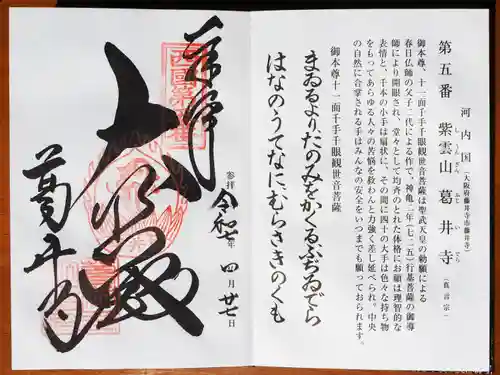 河内国（大阪府藤井寺市藤井寺）
第五番　紫雲山　葛井寺（真言宗）
しうんざん　ふじいでら
御本尊、十一面千手千眼観世音菩薩は聖武天皇の勅願による
春日仏師の父子二代による作で、神亀二年（七二五）行基菩薩の御導
師により開眼され、堂々として均斉のとれた体格にお顔は理智的な
表情と、千本の小手は扇状に、その間に四十の大手は色々な持ち物
をもってあらゆる人々の苦悩を救わんと力強く差し延べられ。中央
の自然に合掌される手はみんなの安全をいつまでも願っておられます。
御本尊十一面千手千眼観世音菩薩
まゐるより、たのみをかくるふぢゐでら
はなのうてなに、むらさきのくも
奉拝
西國第五番
参拝　令和　年　四月　廿七日
大悲殿
葛井寺